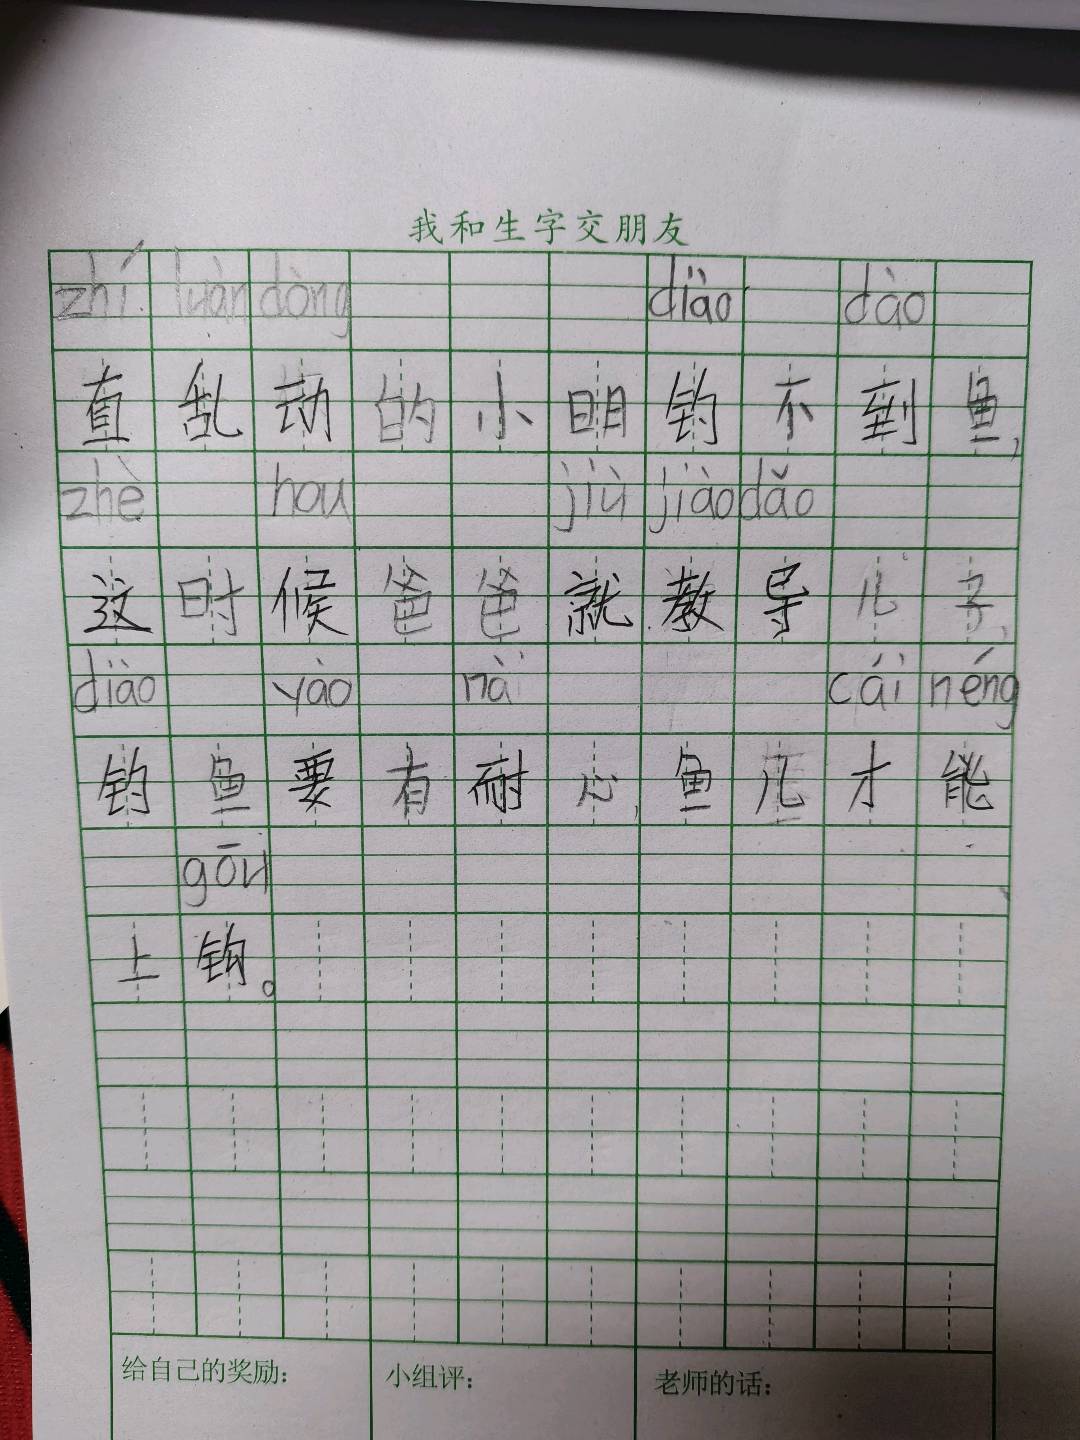 我和生字交朋友
zhí luàn dòng diào dào
直乱动的小明钓不到鱼,
zhè hou jiù jiào dǎo
这时候爸爸就教导儿子,
diào yào nài cái néng
钓鱼要有耐心,鱼儿才能
gōu
上钩。
给自己的奖励: 小组评: 老师的话: